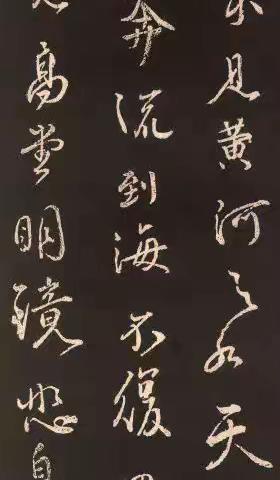 不見黃河之水天
奔流到海不復
見高堂明鏡悲白